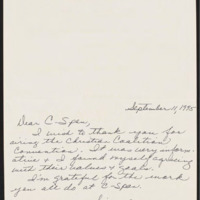 September 11, 1995
Dear C-Span,
I wish to thank you for
airing the Christian Coalition
Convention. It was very inform-
ative & I found myself agreeing
with those values & goals.
I'm grateful for the work
you all do at C-Span